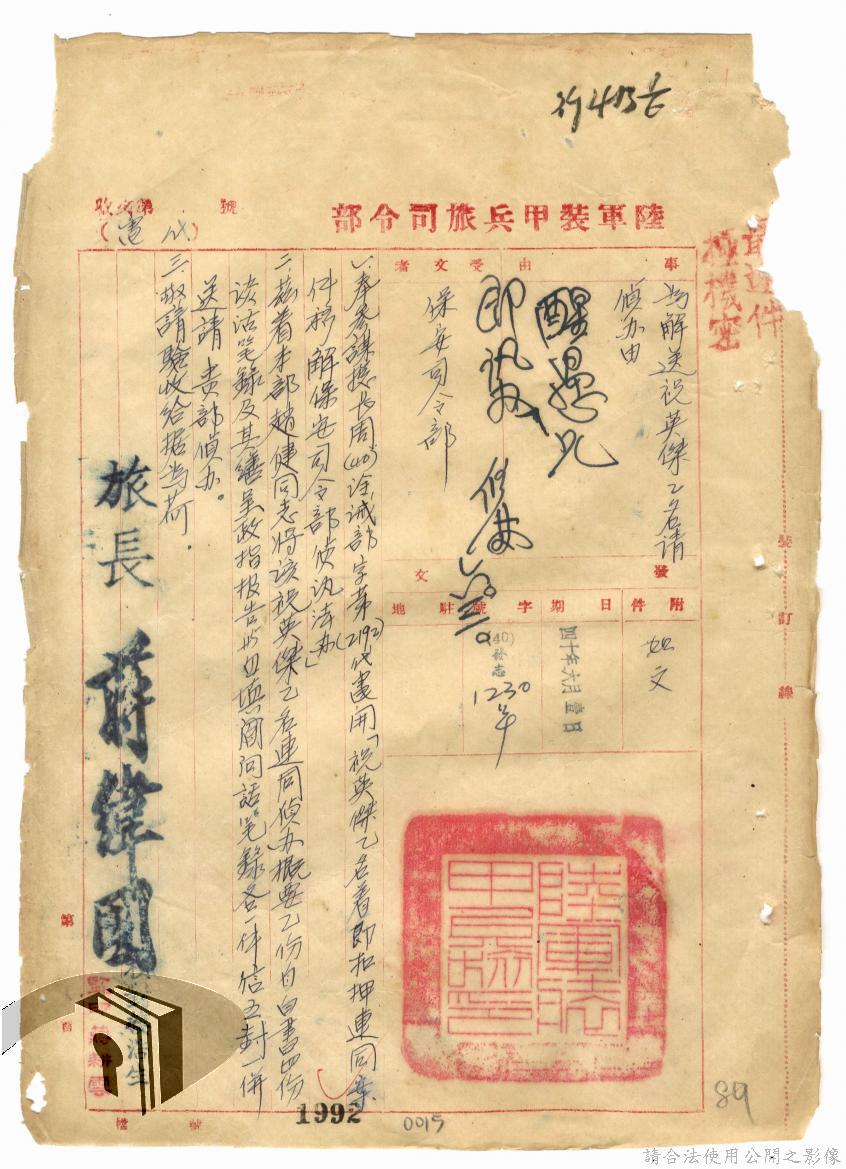 最速件
極機密
陸軍裝甲兵旅司令部
收文第 號
(電代)
事由
受文者
為解送祝英傑乙名請
偵办由
保安司令部
發文
附件
日期
字號
駐地
如文
四十年六月壹日
(40)
1230
一、奉參謀總長周(40)誠部字第(2192)代電開「祝英傑乙名着即扣押連同案
件移解保安司令部偵訊法办」
二、茲着本部趙健同志將該祝英傑乙名連同偵办概要乙份自白書四份
談話筆錄及其繕呈政指報告與關問話筆錄各一件信五封一併
送請 貴部偵办。
三、敬請驗收給据為荷。
旅長 蔣緯國
陸軍裝甲兵旅印
裝訂線
第 頁
檔號
1992
0015
89
請合法使用公開之影像